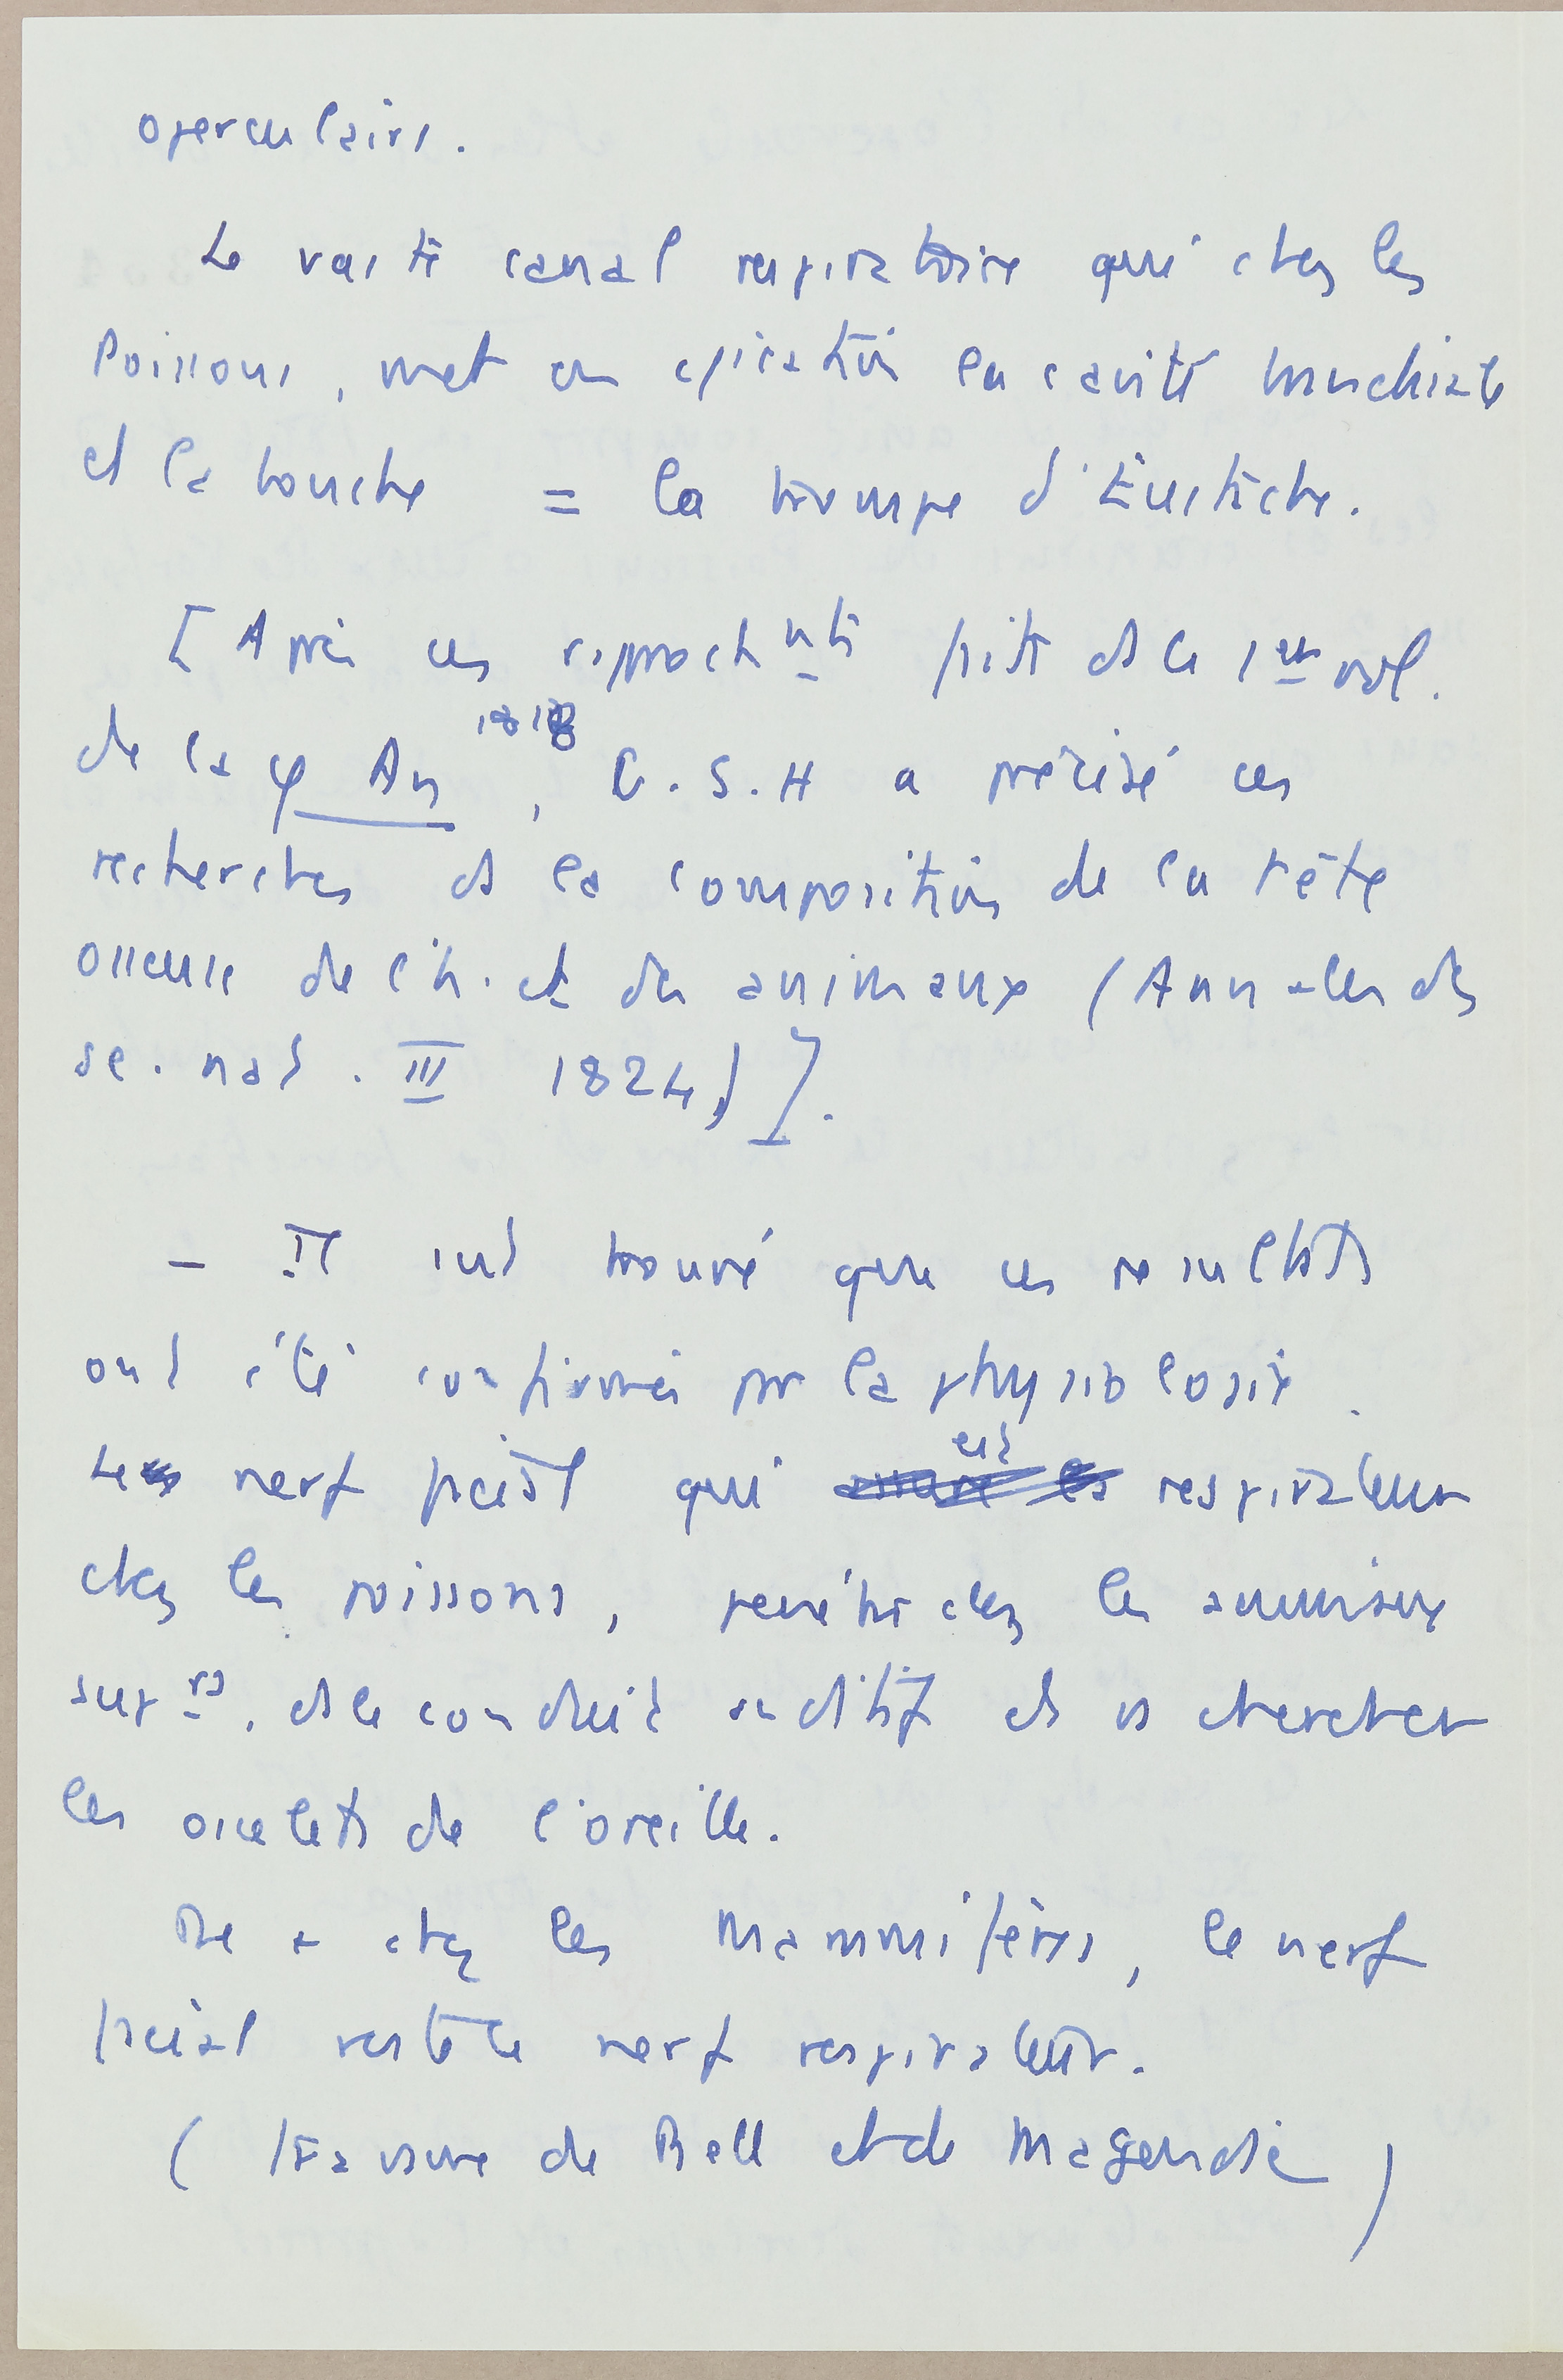 operculaires.
Le vaste canal respiratoire qui chez les
Poissons, met en la cavité branchiale
et la bouche = la trompe d'Eustache.
[Après ces rapprochnts faits ds le 1er vol.
de la φ An 1818, G. S. H a précisé ces
recherches ds la composition de la tête
osseuse de l'h. et des animaux (Annales des
sc. nat. III 1824)].
- Il est trouvé que ces résultats
ont été confirmés par la physiologie.
Le nerf facial qui est respirateur
chez les poissons, pénètre chez les animaux
suprs, ds le conduit auditif et va chercher
les osselets de l'oreille.
De + chez les Mammifères, le nerf
facial reste le nerf respirateur.
(travaux de Bell et de Magendie)